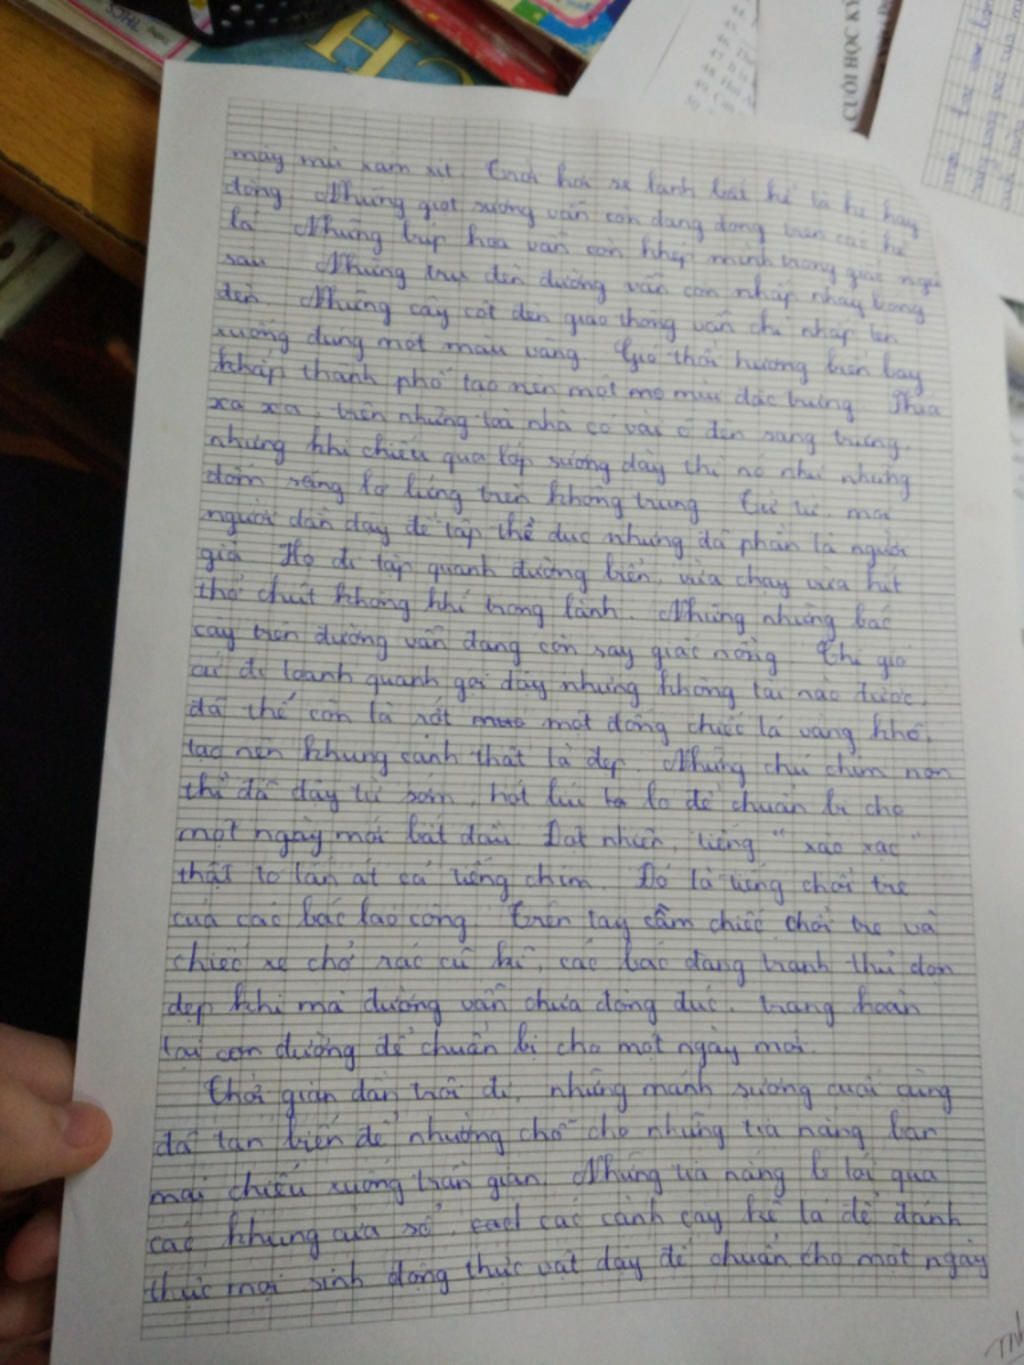 mây mù xám xịt. Trời hơi se lạnh bất kể là hè hay
đông. Những giọt sương vẫn còn đang đọng trên các kẽ
lá. Những búp hoa vẫn còn khép mình trong giấc ngủ
sâu. Những trụ đèn đường vẫn còn nhấp nháy trong
đêm. Những cây cột đèn giao thông vẫn chỉ nhấp lên
xuống đúng một màu vàng. Gió thổi hương biển bay
khắp thành phố tạo nên một mùi đặc trưng. Phía
xa xa, trên những toà nhà có vài ô đèn sáng trưng,
nhưng khi chiếu qua lớp sương dày thì nó như những
đốm sáng lơ lửng trên không trung. Từ từ, mọi
người dần dạy để tập thể dục nhưng đa phần là người
già. Họ đi tập quanh đường biển, vừa chạy vừa hít
thở chút không khí trong lành. Nhưng những bác
cây trên đường vẫn đang còn say giấc nồng. Chị gió
cứ đi loanh quanh gọi dậy nhưng không tài nào được,
đã thế còn là rớt một đống chiếc lá vàng khô,
tạo nên khung cảnh thật là đẹp. Những chú chim non
thì đã dậy từ sớm, hót líu lo để chuẩn bị cho
một ngày mới bắt đầu. Đột nhiên, tiếng " xào xạc "
thật to lấn át cả tiếng chim. Đó là tiếng chổi tre
của các bác lao công. Trên tay cầm chiếc chổi tre và
chiếc xe chở rác cũ kĩ, các bác đang tranh thủ dọn
dẹp khi mà đường vẫn chưa đông đúc, trang hoàn
lại con đường để chuẩn bị cho một ngày mới.
Thời gian dần trôi đi, những mảnh sương cuối cùng
đã tan biến để nhường chỗ cho những tia nắng ban
mai chiếu xuống trần gian. Những tia nắng len lỏi qua
các khung cửa sổ, các cành cây kẽ lá để đánh
thức mọi sinh động thực vật dạy để chuẩn cho một ngày
CUỐI HỌC KỲ